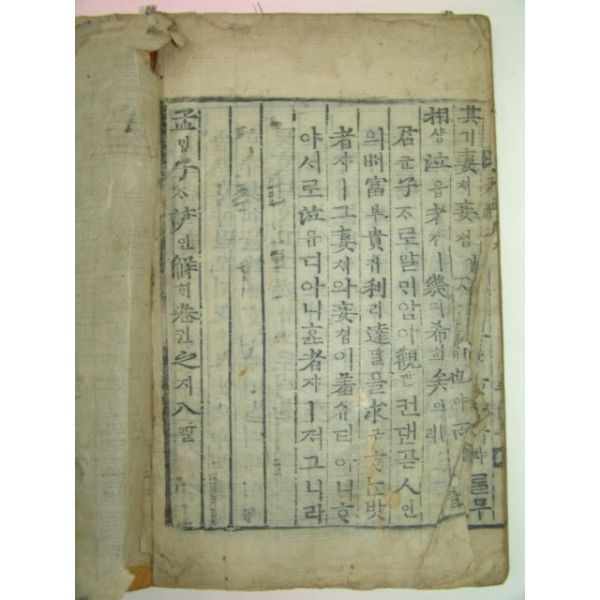 其기妻쳐妾쳡也야而
相샹泣읍者쟈ㅣ幾긔希희矣의
君군子ᄌᆞ로말ᄆᆡ암아觀관컨댄곧人인
의ᄡᅥ富부貴귀利리達달을求구ᄒᆞᄂᆞᆫ밧
者쟈ㅣ그妻쳐와妾쳡이羞슈티아니ᄒᆞ
야서로泣읍디아니ᄒᆞᆫ者쟈ㅣ져그니라
孟ᄆᆡᆼ子ᄌᆞ諺언解ᄒᆡ卷권之지八팔